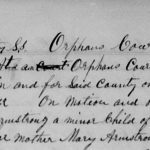 ty S.S. Orphans Cour
At a an Court Orphans Cour
in and for Said County on
On Motion and o
rmstrong a minor Child of
er mother Mary Armstron